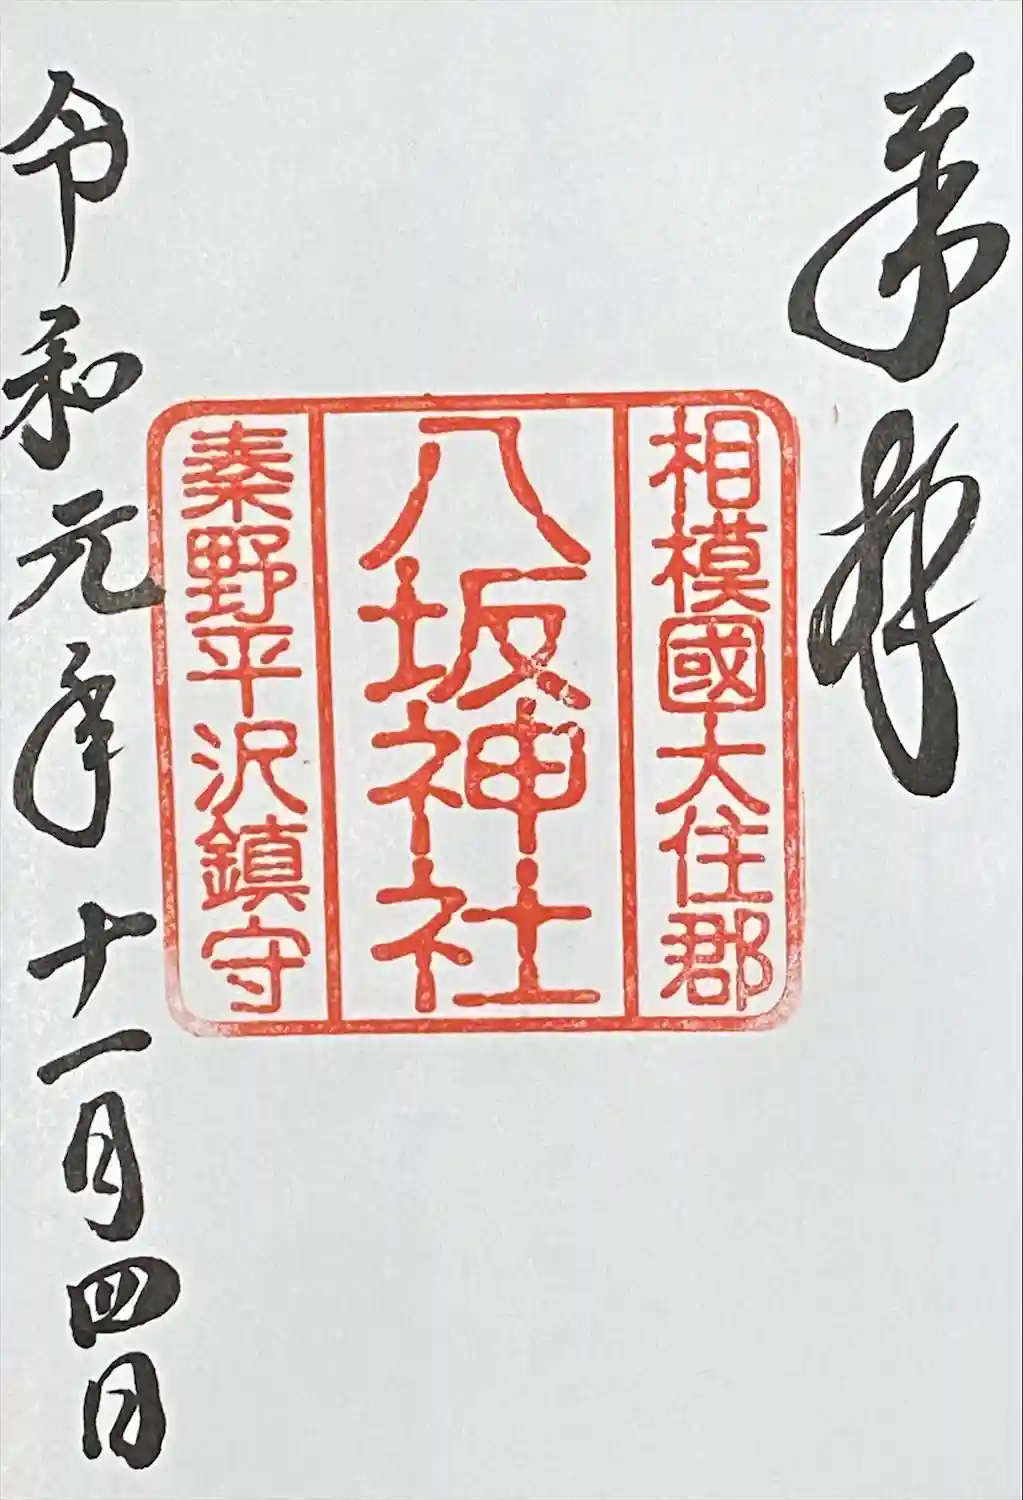 奉拝
相模國大住郡
八坂神社
秦野平沢鎮守
令和元年十一月四日